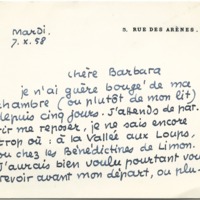 Mardi.
7. X. 58
9, RUE DES ARÈNES.
chère Barbara
je n'ai guère bougé de ma
chambre (ou plutôt de mon lit)
depuis cinq jours. J'attends de par-
tir me reposer, je ne sais encore
trop où : à la Vallée aux Loups,
ou chez les Bénédictines de Limon.
J'aurais bien voulu pourtant vous
revoir avant mon départ, ou plu-